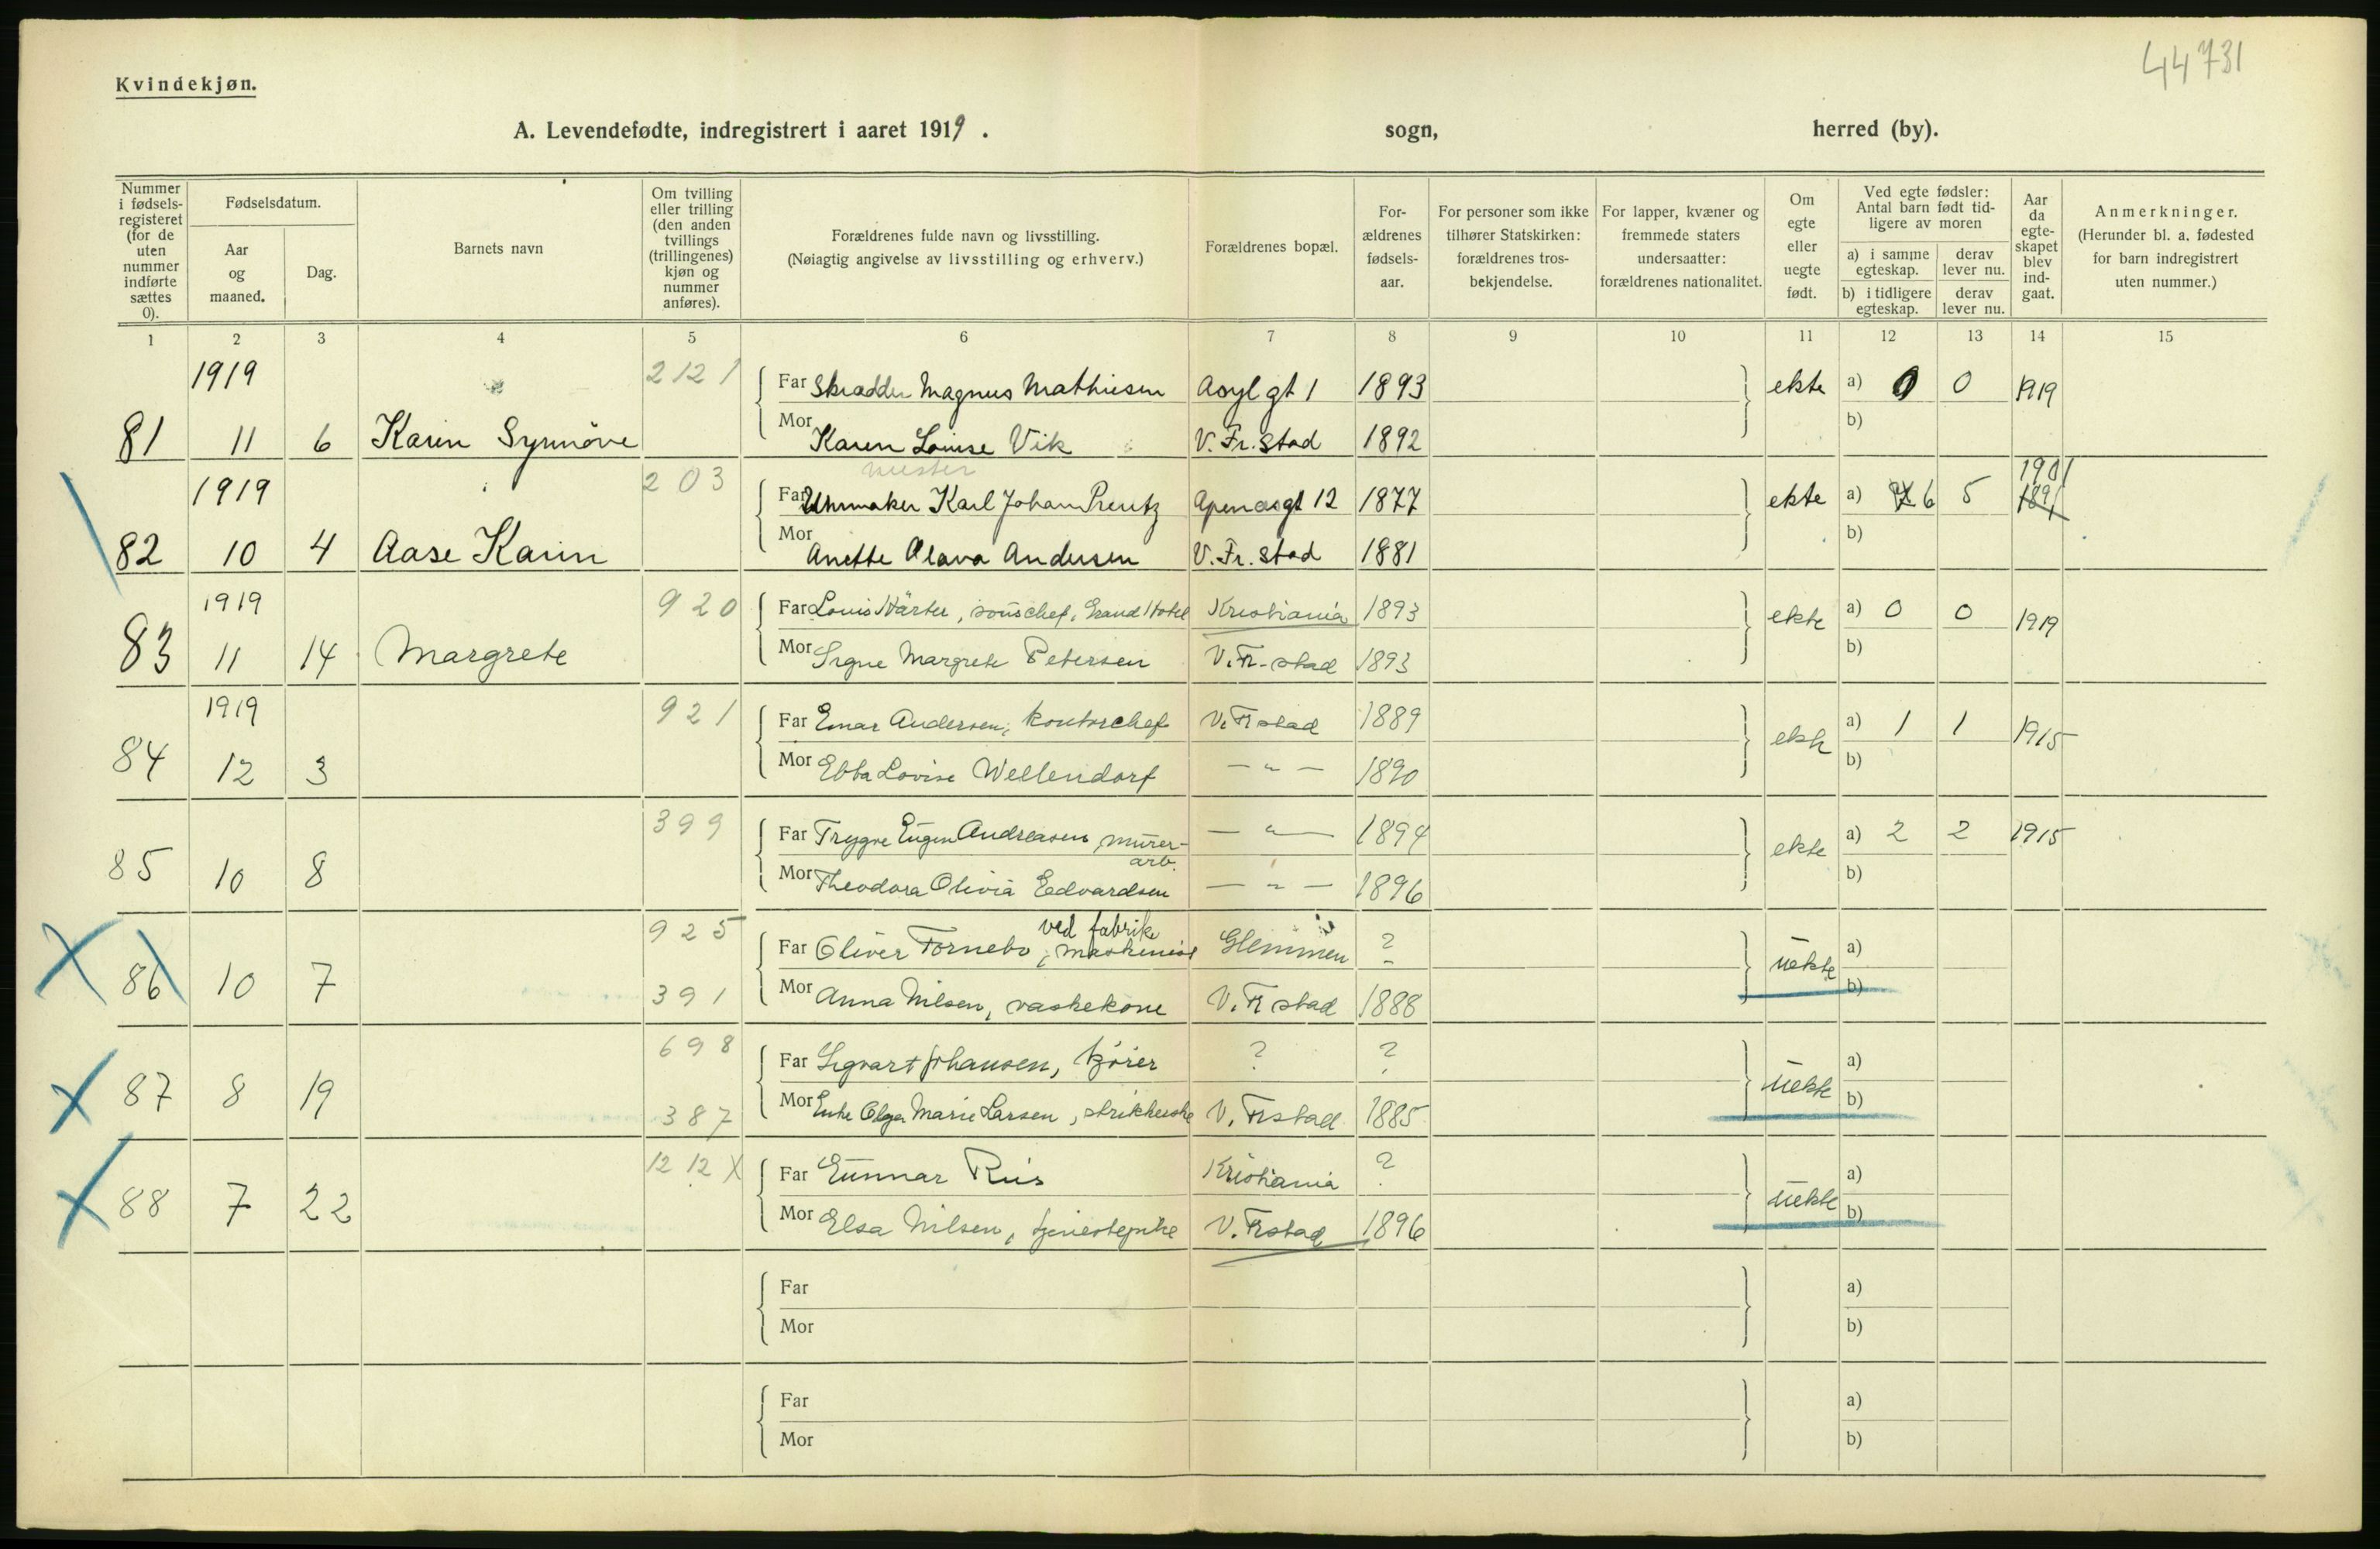 44731
Kvindekjøn.
A. Levendefødte, indregistrert i aaret 1919. sogn, herred (by).
Nummer i fødselsregisteret (for de uten nummer indførte sættes 0).
Fødselsdatum.
Aar og maaned.
Dag.
Barnets navn
Om tvilling eller trilling (den anden tvillings (trillingenes) kjøn og nummer anføres).
Forældrenes fulde navn og livsstilling.
(Nøiagtig angivelse av livsstilling og erhverv.)
Forældrenes bopæl.
Forældrenes fødselsaar.
For personer som ikke tilhører Statskirken: forældrenes trosbekjendelse.
For lapper, kvæner og fremmede staters undersaatter: forældrenes nationalitet.
Om egte eller uegte født.
Ved egte fødsler: Antal barn født tidligere av moren
a) i samme egteskap. derav lever nu.
b) i tidligere egteskap. derav lever nu.
Aar da egteskapet blev indgaat.
Anmerkninger.
(Herunder bl. a. fødested for barn indregistrert uten nummer.)
1 2 3 4 5 6 7 8 9 10 11 12 13 14 15
1919 2121 Far Skrædder Magnus Mathiesen Asylgt 1 1893 ekte a) 0 0 1919
81 11 6 Karin Synnöve Mor Karen Louise Vik V. Fr.stad 1892 b)
mester 1901
1919 203 Far Uhrmaker Karl Johan Preutz Apenæsgt 12 1877 ekte a) 6 5 1891
82 10 4 Aase Karin Mor Anette Olava Andersen V. Fr. stad 1881 b)
1919 920 Far Louis Härter, souschef, Grand Hotel Kristiania 1893 ekte a) 0 0 1919
83 11 14 Margrete Mor Signe Margrete Petersen V. Fr-stad 1893 b)
1919 921 Far Einar Andersen, kontorchef V. Frstad 1889 ekte a) 1 1 1915
84 12 3 Mor Ebba Lovise Wellendorf — " — 1890 b)
399 Far Trygve Eugen Andreasen, murer- — " — 1894 ekte a) 2 2 1915
arb.
85 10 8 Mor Theodora Olivia Edvardsen — " — 1896 b)
ved fabrike
925 Far Oliver Tornebo, maskinist Glemmen ? uekte a)
86 10 7 391 Mor Anna Nilsen, vaskekone V. Fr stad 1888 b)
698 Far Sigvart Johansen, kjører ? ? uekte a)
87 8 19 387 Mor Enke Olga Marie Larsen, strikkerske V. Frstad 1885 b)
1212 X Far Gunnar Riis Kristiania ? uekte a)
88 7 22 Mor Elsa Nilsen, tjenestepike V. Frstad 1896 b)
Far a)
Mor b)
Far a)
Mor b)